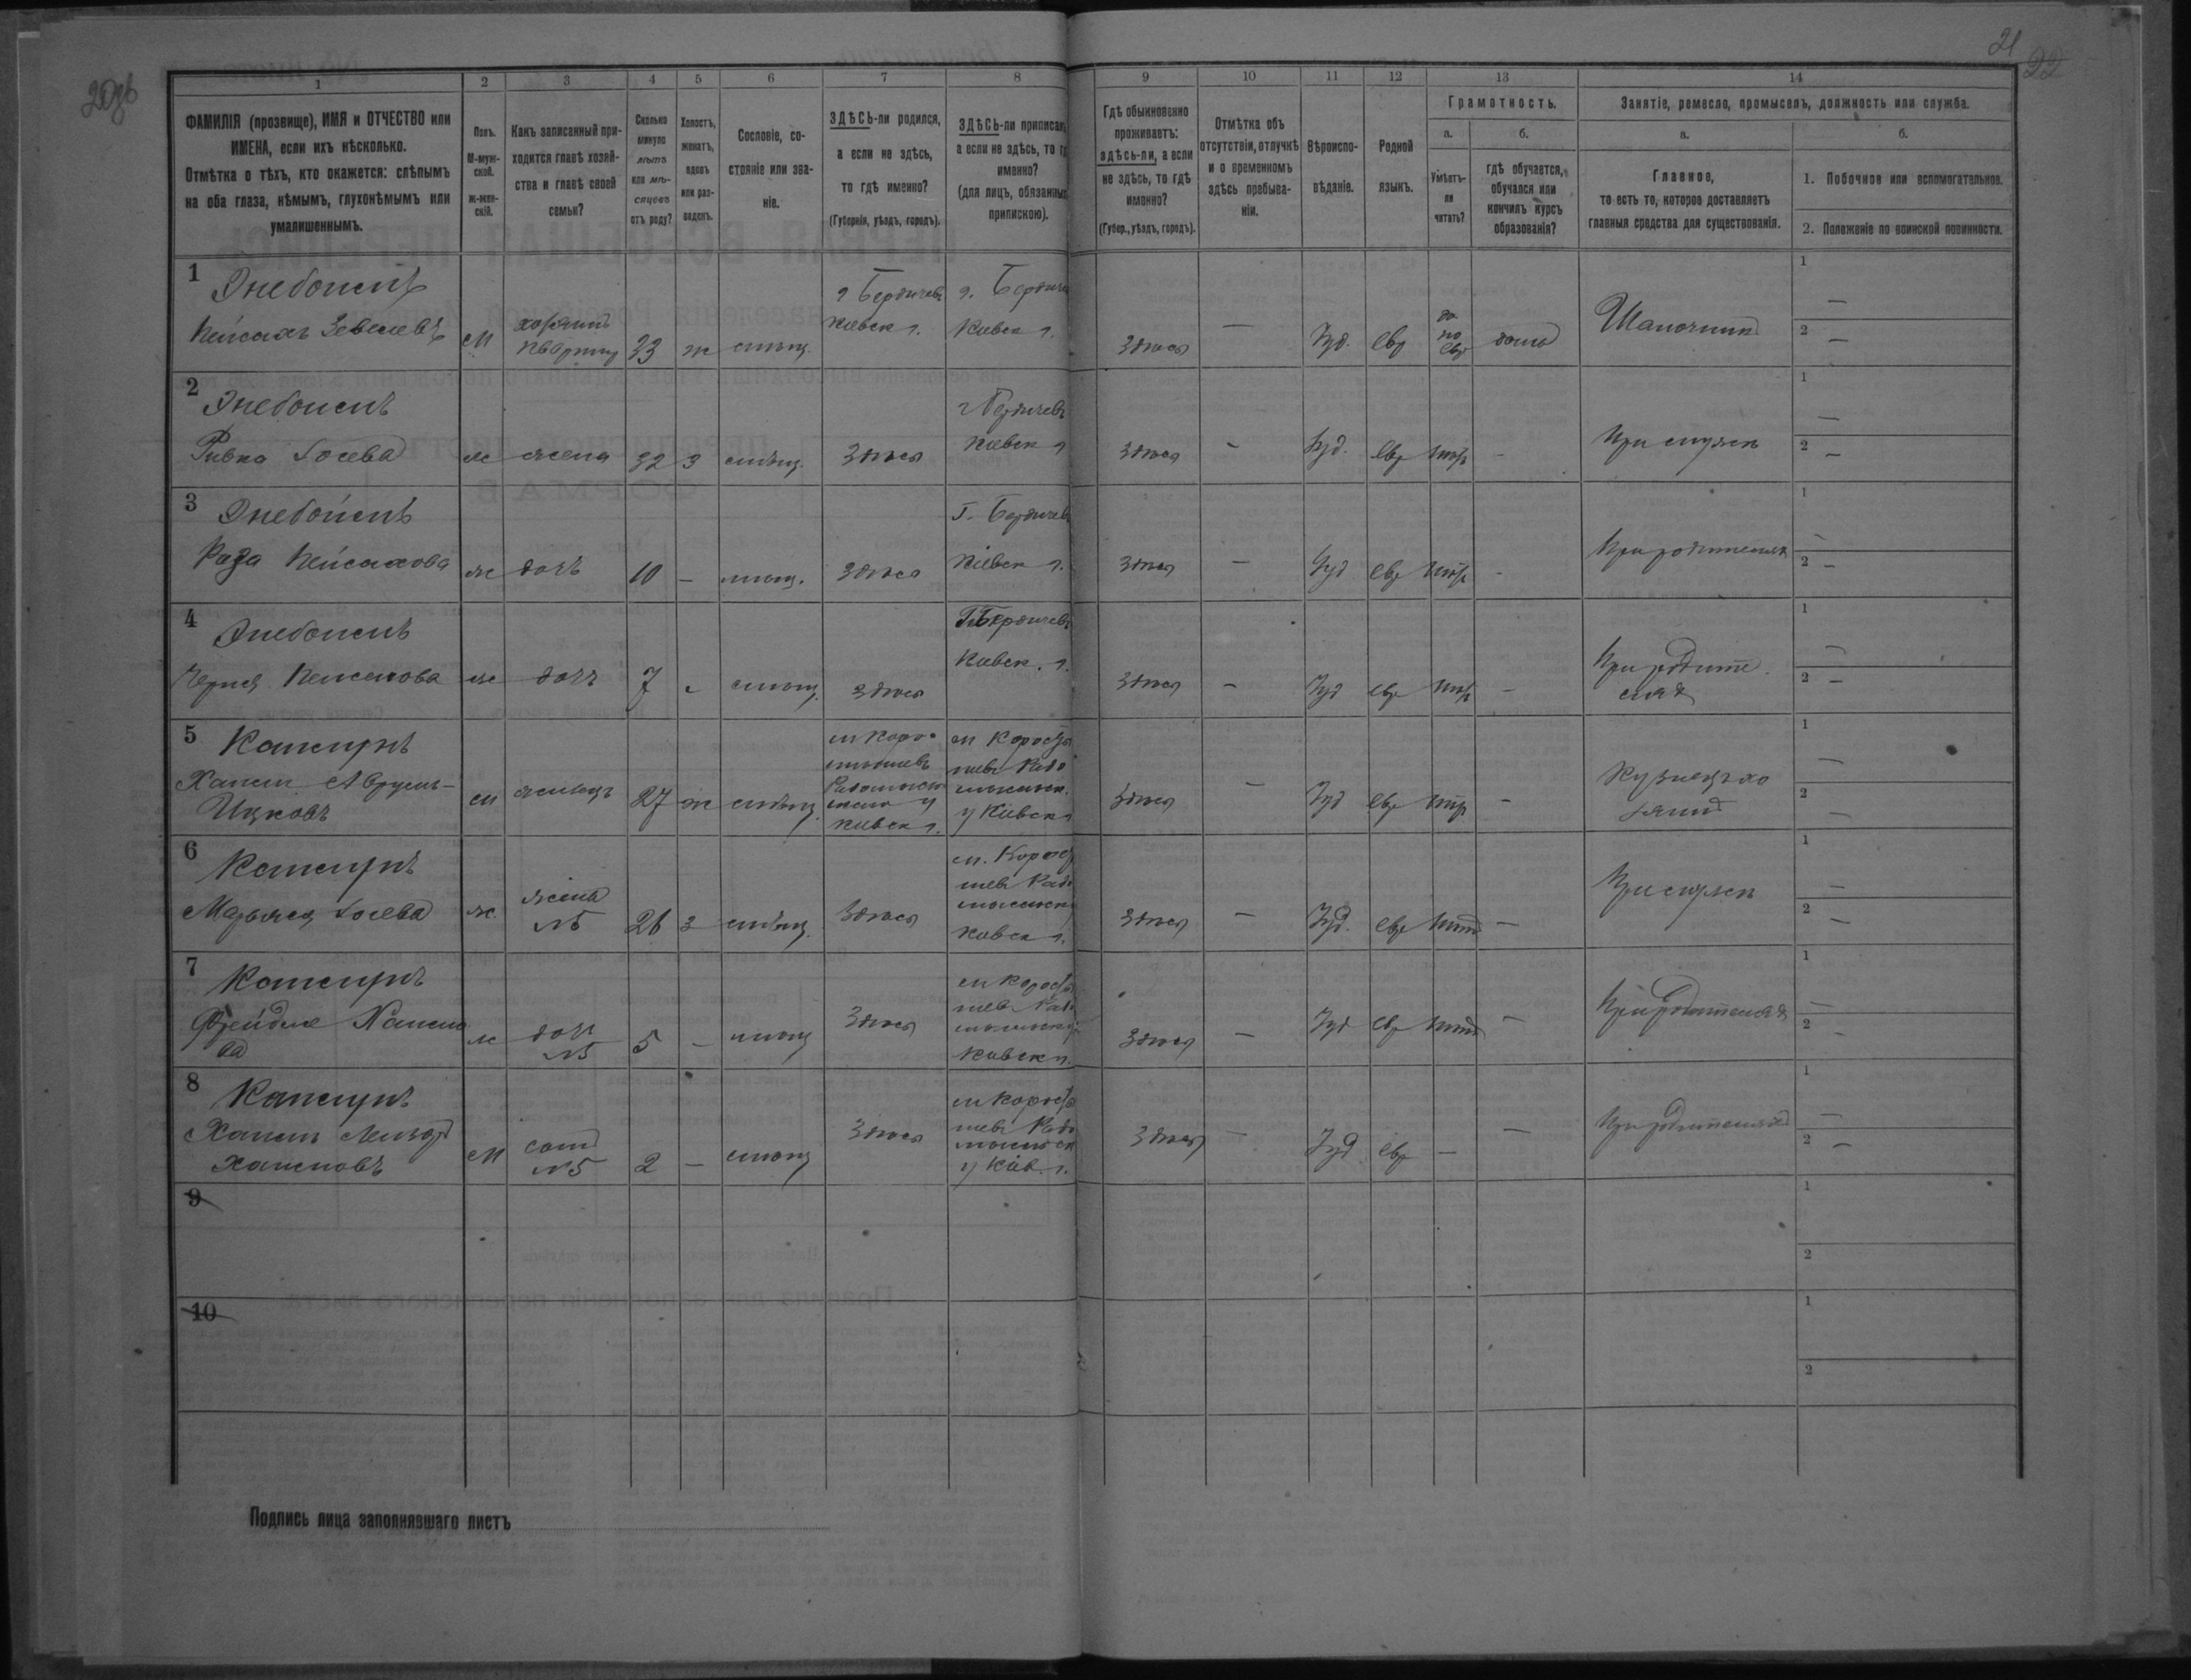 20об
21
22
1
2
3
4
5
6
7
8
9
10
11
12
13
14
ФАМИЛІЯ (прозвище), ИМЯ и ОТЧЕСТВО или
ИМЕНА, если ихъ нѣсколько.
Отмѣтка о тѣхъ, кто окажется: слѣпымъ
на оба глаза, нѣмымъ, глухонѣмымъ или
умалишеннымъ.
Полъ.
М-муж-
ской.
Ж-жен-
скій.
Какъ записанный при-
ходится главѣ хозяй-
ства и главѣ своей
семьи?
Сколько
минуло
лѣтъ
или мѣ-
сяцевъ
отъ роду?
Холостъ,
женатъ,
вдовъ
или раз-
веденъ.
Сословіе, со-
стояніе или зва-
ніе.
ЗДѢСЬ-ли родился,
а если не здѣсь,
то гдѣ именно?
(Губернія, уѣздъ, городъ).
ЗДѢСЬ-ли приписан
а если не здѣсь, то г
именно?
(для лицъ, обязанных
припискою).
Гдѣ обыкновенно
проживаетъ:
здѣсь-ли, а если
не здѣсь, то гдѣ
именно?
(Губер., уѣздъ, городъ).
Отмѣтка объ
отсутствіи, отлучкѣ
и о временномъ
здѣсь пребыва-
ніи.
Вѣроиспо-
вѣданіе.
Родной
языкъ.
Грамотность.
а.
Умѣетъ-
ли
читать?
б.
гдѣ обучается,
обучался или
кончилъ курсъ
образованія?
Занятіе, ремесло, промыселъ, должность или служба.
а.
Главное,
то есть то, которое доставляетъ
главныя средства для существованія.
б.
1. Побочное или вспомогательное.
2. Положеніе по воинской повинности.
1
Пейсахъ Зевелевъ
М
хозяинъ
квартиры
33
ж
мѣщ.
г Бердичевъ
Кіевск г.
г. Бердиче
Кіевск г.
Здѣсь
—
Іуд.
евр
да
по
евр
дома
Шапочник
1
—
2
—
2
Ривка Іосева
ж
жена
32
з
мѣщ.
Здѣсь
г Бердичевъ
Кіевск г
Здѣсь
-
Іуд.
евр
нѣтъ
-
При мужѣ
1
—
2
—
3
Роза Пейсахова
ж
дочь
10
-
мѣщ.
Здѣсь
Г. Бердичев
Кіевск г.
Здѣсь
—
Іуд
евр
нѣтъ
-
При родителях
1
-
2
—
4
Пейсахова
ж
дочь
7
-
мѣщ.
Здѣсь
Г Бердичевъ
Кіевск. г.
Здѣсь
—
Іуд
евр
нѣтъ
—
При родите
лях
1
—
2
—
5
Хаим Аврум-
Ицковъ
м
жилецъ
27
ж
мѣщ.
м Коро
стышевъ
у
Кіевск г.
м Корост
шевъ Радо
мысльск.
у Кіевск г
Здѣсь
—
Іуд
евр
нѣтъ
-
1
—
2
—
6
Марьяся Іосева
ж
жена
№5
26
з
мѣщ.
Здѣсь
м. Корост
шевъ Радо
мысльск
Кіевск г.
Здѣсь
—
Іуд.
евр
нѣтъ
—
При мужѣ
1
—
2
—
7
Фрейдля Хаимо
ва
ж
доч
№5
5
-
мѣщ
Здѣсь
м Корост
шевъ Радо
мысльск у
Кіевск г.
Здѣсь
—
Іуд
евр
нѣтъ
—
При родителях
1
—
2
—
8
Хаимовъ
М
сын
№5
2
—
мѣщ
Здѣсь
м Корост
шевъ Радо
мысльск
у Кіев. г.
Здѣсь
—
Іуд
евр
—
—
При родителях
1
—
2
—
9
1
2
10
1
2
Подпись лица заполнявшаго листъ